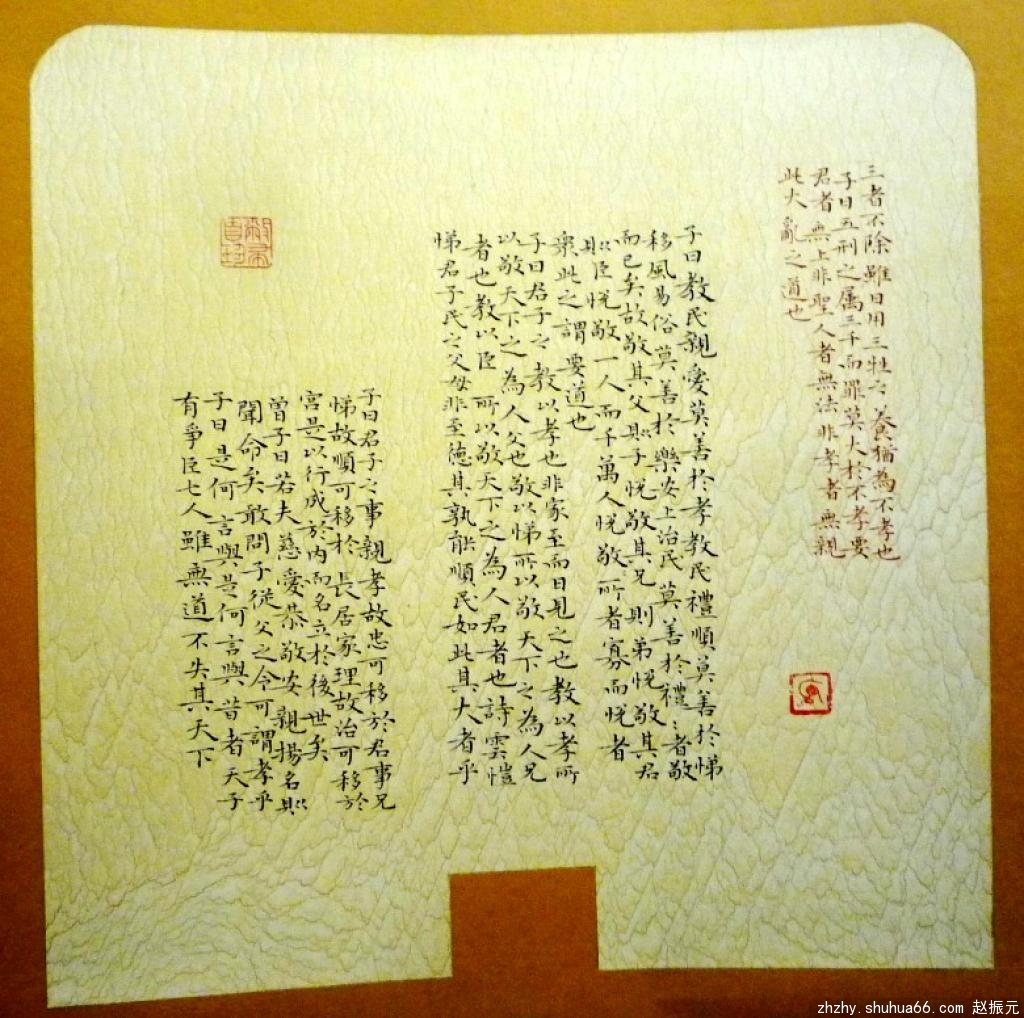 三者不除雖日用三牲之養猶為不孝也
子曰五刑之属三千而罪莫大於不孝要
君者無上非聖人者無法非孝者無親
此大亂之道也
子曰教民親愛莫善於孝教民禮順莫善於悌
移風易俗莫善於樂安上治民莫善於禮：者敬
而已矣故敬其父則子悅敬其兄則弟悅敬其君
則臣悅敬一人而千萬人悅敬所者寡而悅者
衆此之謂要道也
子曰君子之教以孝也非家至而日見之也教以孝所
以敬天下之為人父也敬以悌所以敬天下之為人兄
者也教以臣所以敬天下之為人君者也詩雲愷
悌君子民之父母非至德其孰能順民如此其大者乎
子曰君子之事親孝故忠可移於君事兄
悌故順可移於長居家理故治可移於
宮是以行成於内而名立於後世矣
曾子曰若夫慈愛恭敬安親揚名則
聞命矣敢問子從父之令可謂孝乎
子曰是何言與是何言與昔者天子
有爭臣七人雖無道不失其天下
zhzhy.shuhua66.com 赵振元